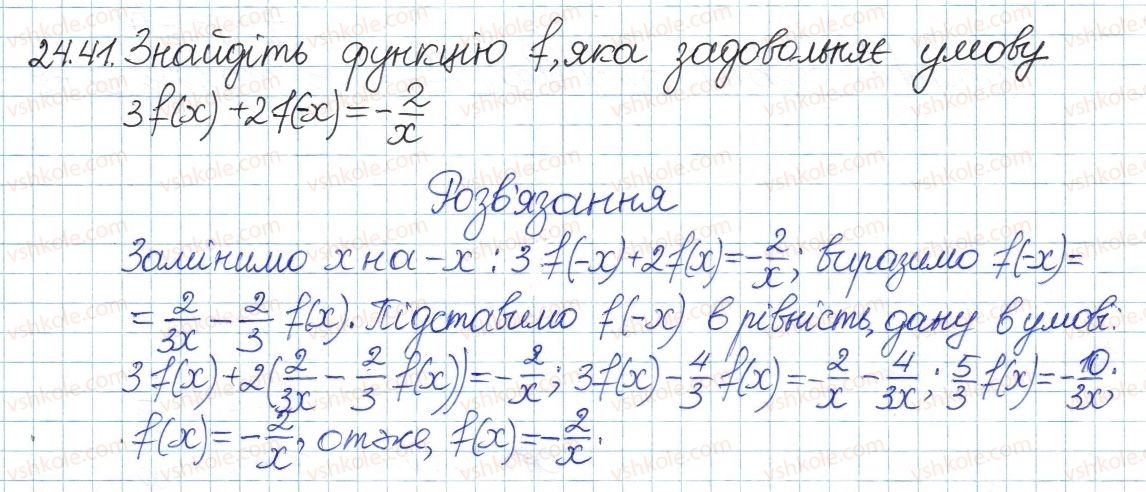 24.41. Знайдіть функцію f, яка задовольняє умову
3f(x)+2f(-x)=-2/x
Розв'язання
Замінимо x на -x : 3f(-x)+2f(x)=-2/x; виразимо f(-x)=
=2/3x - 2/3 f(x). Підставимо f(-x) в рівність, дану в умові:
3f(x)+2(2/3x - 2/3 f(x))=-2/x; 3f(x)-4/3 f(x)=-2/x-4/3x; 5/3 f(x)=-10/3x;
f(x)=-2/x, отже, f(x)=-2/x.